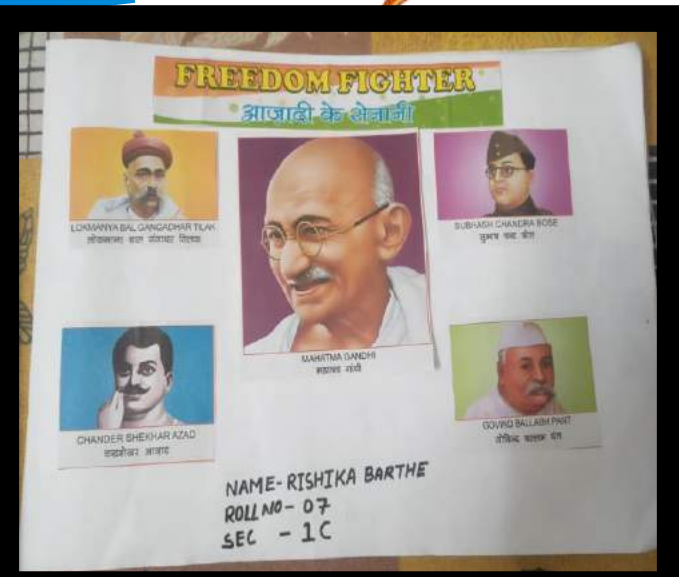 FREEDOM FIGHTER
आज़ादी के सेनानी
LOKMANYA BAL GANGADHAR TILAK
लोकमान्य बाल गंगाधर तिलक
SUBHASH CHANDRA BOSE
सुभाष चन्द्र बोस
MAHATMA GANDHI
महात्मा गांधी
CHANDER SHEKHAR AZAD
चन्द्रशेखर आजाद
GOVIND BALLABH PANT
गोविन्द बल्लभ पंत
NAME- RISHIKA BARTHE
ROLL NO- 07
SEC - 1C